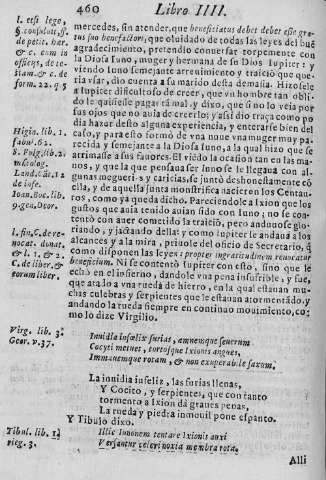 460 Libro IIII.
mercedes, sin atender, que beneficiatus debet debet esse gra-
tus suo benefactori, que oluidado de todas las leyes del buē
agradecimiento, pretendio conuersar torpemente con
la Diosa Iuno, muger y hermana de su Dios Iupiter: y
viendo Iuno semejante atreuimiento y traiciō que que-
ria vsar, dio cuenta a su marido desta demasia. Hizosele
a Iupiter dificultoso de creer, que vn hombre tan obli-
do le quisiesse pagar tā mal, y dixo, que si no lo veia por
sus ojos que no auia de creerlo: y assi dio traça como po
dia hazer desto alguna experiencia, y enterarse bien del
caso, y para esto formò de vna nuue vna muger muy pa-
recida y semejante a la Diosa Iuno, a la qual hizo que se
arrimasse a sus fauores. El viēdo la ocasiō tan en las ma-
nos, y que la que pensaua ser Iuno se le llegaua con al-
gunas mogeris y caricias, se juntò deshonestamente cō
ella, y de aquella junta monstrifica nacieron los Centau-
ros, como ya queda dicho. Pareciendole a Ixion que los
gustos que auia tenido auian sido con Iuno; no se con-
tentò con auer cometido la traiciō, pero anduuose glo-
riando, y jactando della: y como Iupiter le andaua a los
alcances y a la mira, priuole del oficio de Secretario, q̄
como disponen las leyes: propter ingratitudinem reuocatur
beneficium. Ni se contentò Iupiter con esto, sino que le
echò en el infierno, dandole vna pena insufrible, y fue,
que atalo a vna rueda de hierro, en la qual estauan mu-
chas culebras y serpientes que le estauan atormentādo, y
andando la rueda siempre en continuo mouimiento, co-
mo lo dize Virgilio.
Inuidia infœlix furias, amnemque seuerum
Cocyti metuet, tortosque Ixionis angues,
Immanemque rotam, & non exuperabile saxum.
La inuidia infeliz, las furias llenas,
Y Cocito, y serpientes, que con tanto
tormento a Ixion dā graues penas,
La rueda y piedra inmouil pone espanto.
Y Tibulo dixo.
Illic Iunonem tentare Ixionis auxi
Versantur celeri noxia membra rota.
Alli
I. etsi lege,
§. consuluit, ff.
de petit. har.
& c. cum in
officijs, de te-
stam. & c. de
form. 22. q. 5
Higin. lib. 1.
fabu. 62.
lib. 2.
mitolog.
de infe.
Ioan. Boc. lib.
9. gen. Deor.
l. fin. C. de re-
uocat. donat.
& l. 1. & 2.
C. de liber. &
eorum liber.
Virg. lib. 3.
Geor. v. 37.
Tibul. lib. 1
eleg. 3.